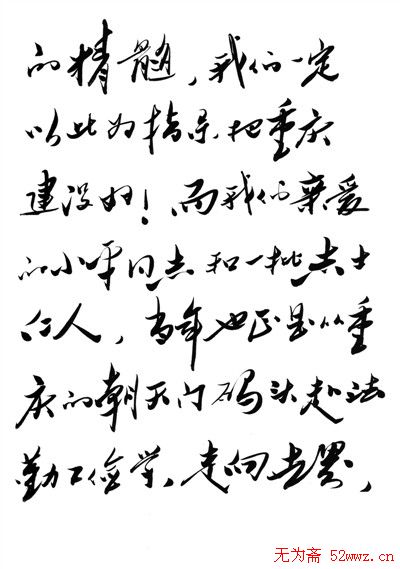 的精髓，我们一定
以此为指导，把重庆
建设好！而我们亲爱
的小平同志和一批志士
仁人，当年也正是从重
庆的朝天门码头赴法
勤工俭学，走向世界，
无为斋 52wwz.cn